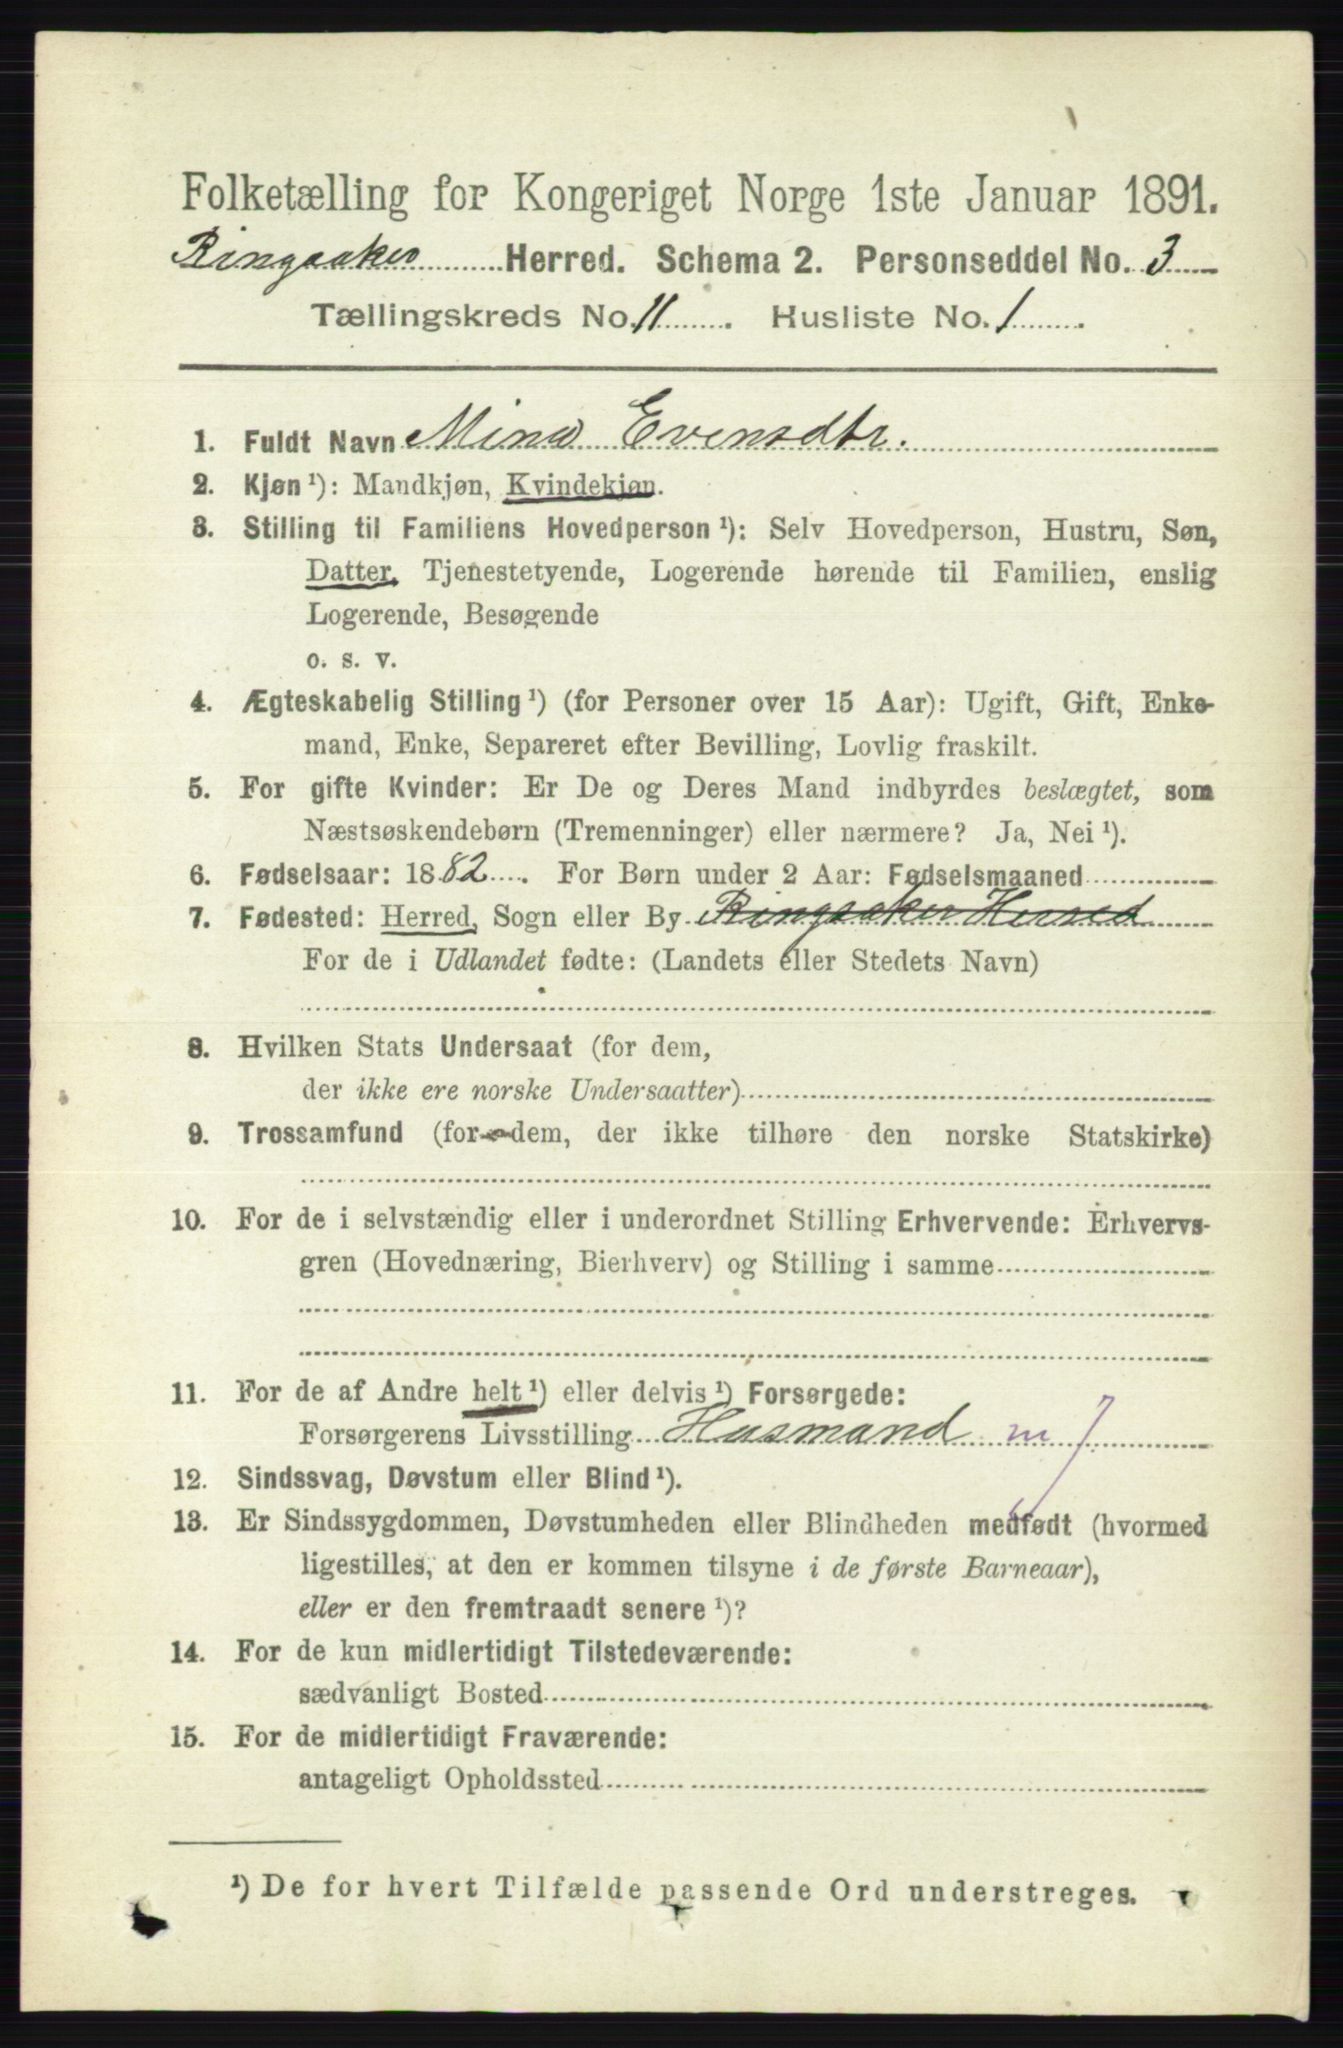 Folketælling for Kongeriget Norge 1ste Januar 1891.
Ringsaker Herred. Schema 2. Personseddel No. 3
Tællingskreds No. 11. Husliste No. 1.
1. Fuldt Navn Mina Evensdtr.
2. Kjøn ¹): Mandkjøn, Kvindekjøn.
3. Stilling til Familiens Hovedperson ¹): Selv Hovedperson, Hustru, Søn,
Datter, Tjenestetyende, Logerende hørende til Familien, enslig
Logerende, Besøgende
o. s. v.
4. Ægteskabelig Stilling ¹) (for Personer over 15 Aar): Ugift, Gift, Enke-
mand, Enke, Separeret efter Bevilling, Lovlig fraskilt.
5. For gifte Kvinder: Er De og Deres Mand indbyrdes beslægtet, som
Næstsøskendebørn (Tremenninger) eller nærmere? Ja, Nei ¹).
6. Fødselsaar: 1882. For Børn under 2 Aar: Fødselsmaaned
7. Fødested: Herred, Sogn eller By Ringsaker Herred
For de i Udlandet fødte: (Landets eller Stedets Navn)
8. Hvilken Stats Undersaat (for dem,
der ikke ere norske Undersaatter)
9. Trossamfund (for dem, der ikke tilhøre den norske Statskirke)
10. For de i selvstændig eller i underordnet Stilling Erhvervende: Erhvervs-
gren (Hovednæring, Bierhverv) og Stilling i samme
11. For de af Andre helt ¹) eller delvis ¹) Forsørgede:
Forsørgerens Livsstilling Husmand m J
12. Sindssvag, Døvstum eller Blind ¹).
13. Er Sindssygdommen, Døvstumheden eller Blindheden medfødt (hvormed
ligestilles, at den er kommen tilsyne i de første Barneaar),
eller er den fremtraadt senere ¹)?
14. For de kun midlertidigt Tilstedeværende:
sædvanligt Bosted
15. For de midlertidigt Fraværende:
antageligt Opholdssted
¹) De for hvert Tilfælde passende Ord understreges.